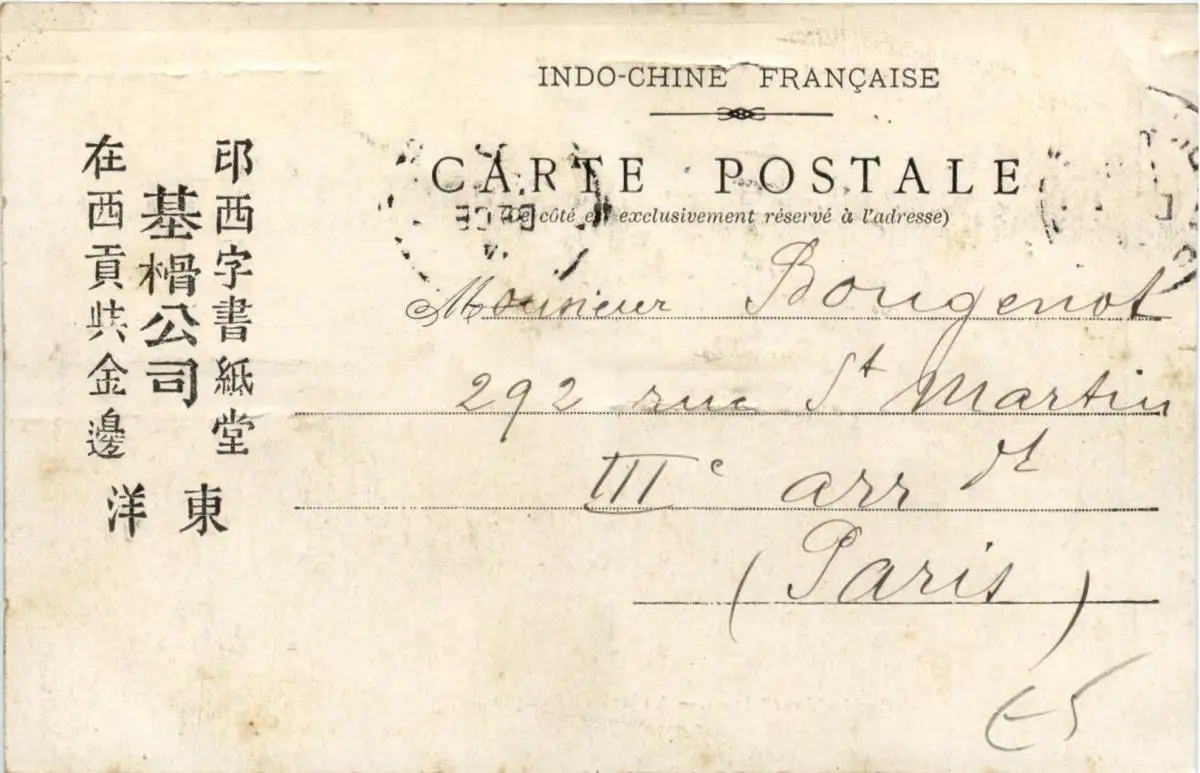 INDO-CHINE FRANÇAISE
CARTE POSTALE
(Ce côté est exclusivement réservé à l'adresse)
Monsieur Bougenot
292 rue St Martin
IIIe arrdt
(Paris)
印西字書紙堂
基榾公司
在西貢共金邊
東洋